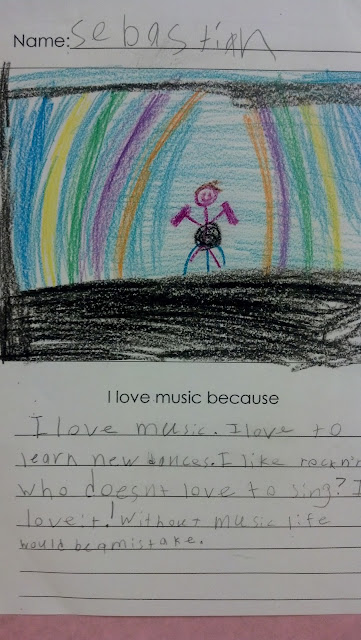 Name: sebastian
I love music because
I love music. I love to
learn new dances. I like rock n r
who doesnt love to sing? I
love it! Without music life
would be a mistake.